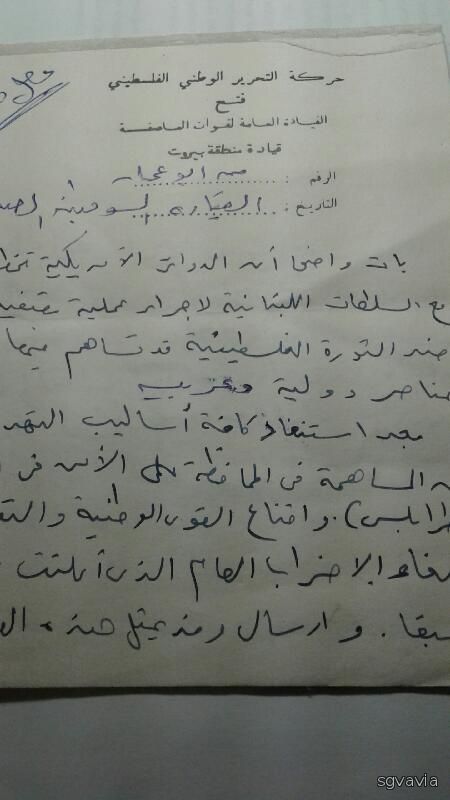 حركة التحرير الوطني الفلسطيني
فتح
القيادة العامة لقوات العاصفة
قيادة منطقة بيروت
الرقم :
التاريخ :
بات واضحا أن الدوائر الأمريكية
مع السلطات اللبنانية لاجراء عملية
ضد الثورة الفلسطينية قد تساهم فيها
عناصر دولية وعربيه
استنفاذ كافة أساليب
المساهمة في المحافظة على الأمن في
طرابلس) . واقناع القوى الوطنية
الاضراب العام الذي أعلنت
سبقا . وارسال وفد يمثل هذه
sgvavia